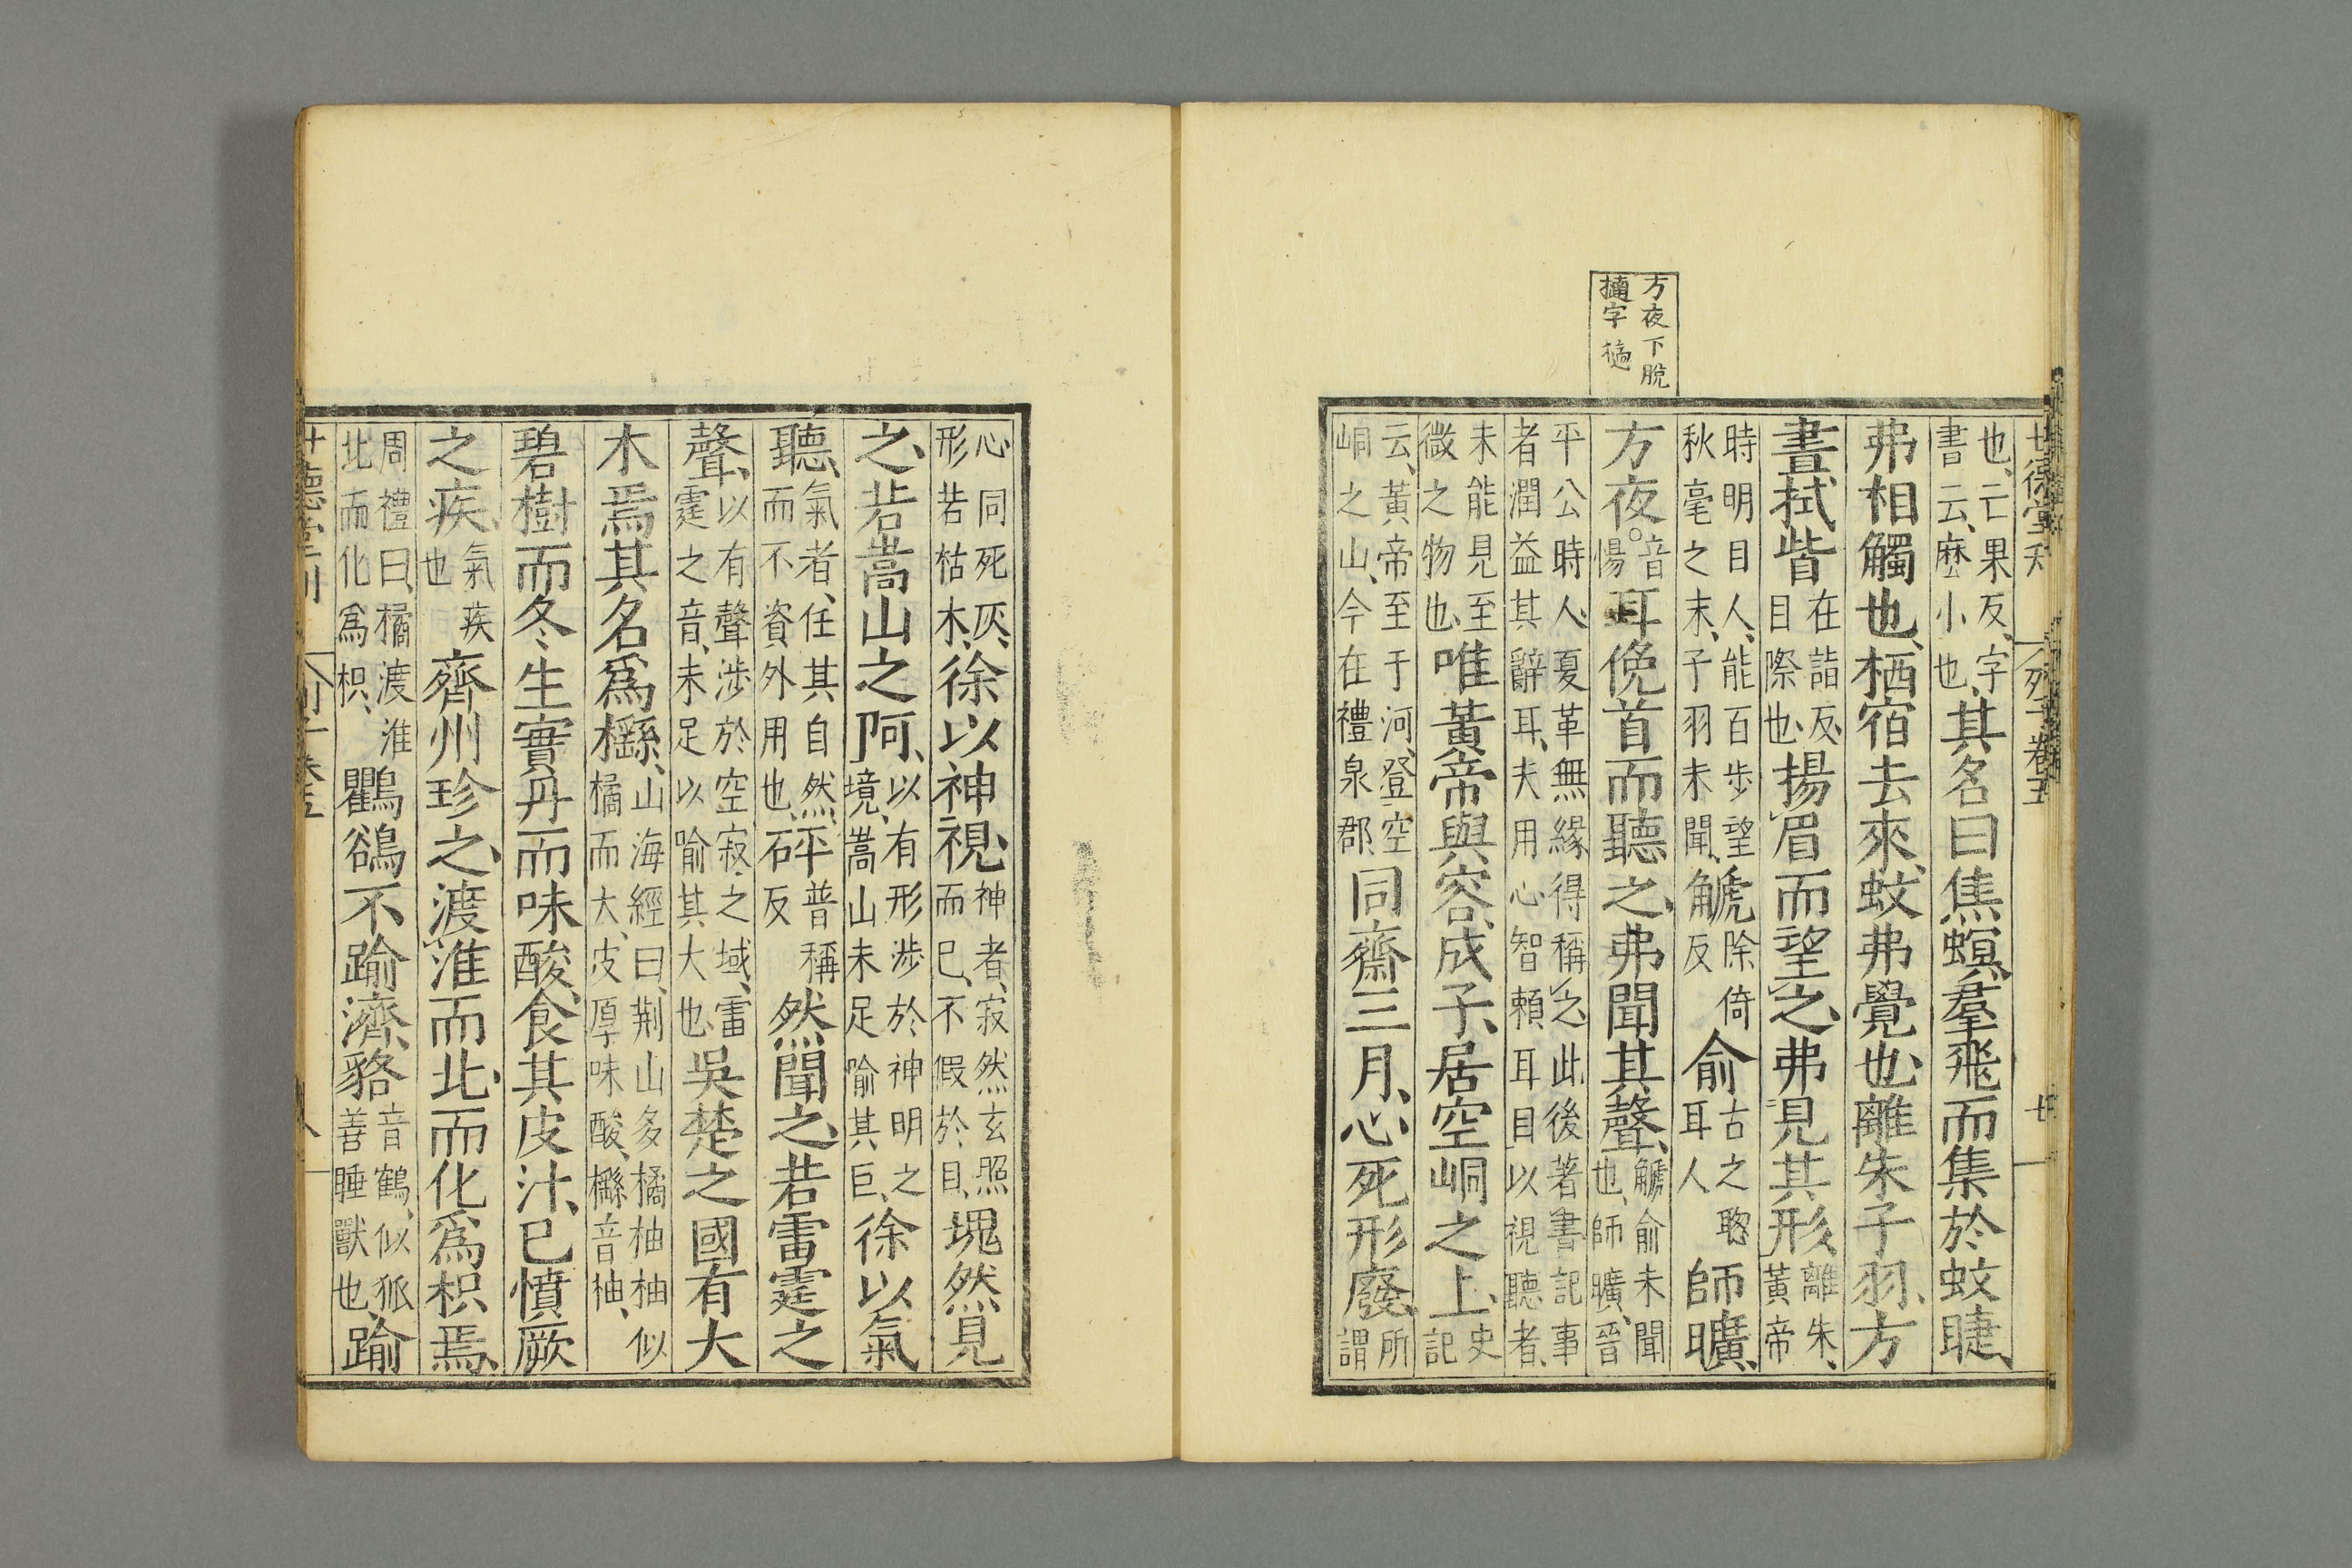 方夜下脫
擿字
也、亡果反、字
書云、麽小也、其名曰焦螟、羣飛而集於蚊睫、
弗相觸也、栖宿去來、蚊弗覺也、離朱子羽、方
晝拭眥在詣反、目際也、揚眉而望之、弗見其形、離朱、黃帝
時明目人、能百步望秋毫之末、子羽未聞、䚦除倚反俞古之聦耳人師曠、
方夜。音惕耳俛首而聽之、弗聞其聲、䚦俞未聞也、師曠、晉
平公時人、夏革無緣得稱之、此後著書記事者潤益其辭耳、夫用心智賴耳目以視聽者、
未能見至微之物也、唯黃帝與容成子、居空峒之上、史記
云、黃帝至于河、登空峒之山、今在禮泉郡、同齋三月、心死形廢、所謂
心同死灰、形若枯木、徐以神視、神者、寂然玄照而已、不假於目、塊然見
之、若嵩山之阿、以有形涉於神明之境、嵩山未足喻其巨、徐以氣
聽、氣者、任其自然、而不資外用也、砰普稱石反然聞之、若雷霆之
聲、以有聲涉於空寂之域、雷霆之音、未足以喻其大也、吳楚之國有大
木焉、其名爲櫾、山海經曰、荆山多橘柚、柚似橘而大、皮厚味酸、櫾音柚、
碧樹而冬生、實丹而味酸、食其皮汁、已憤厥
之疾、氣疾也齊州珍之、渡淮而北、而化爲枳焉、
周禮曰、橘渡淮北而化爲枳、鸜鵒不踰濟、貉音鶴、似狐善睡獸也、踰